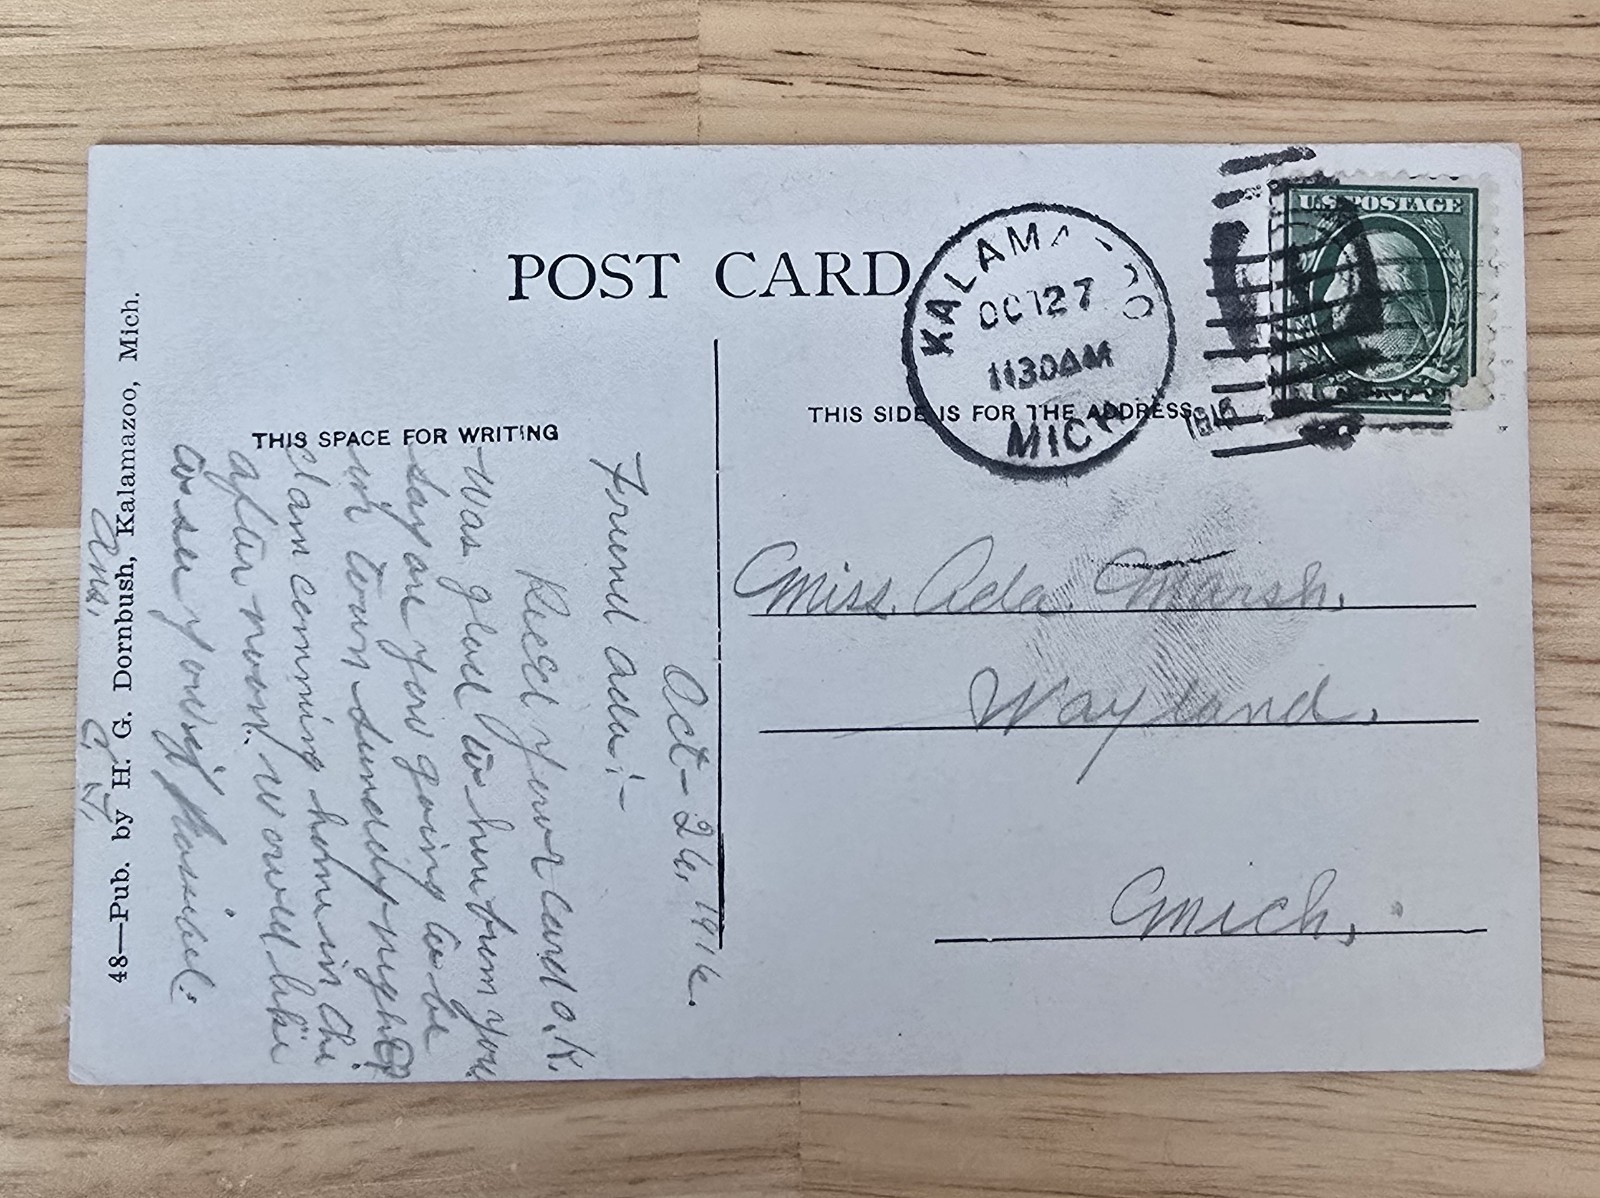 POST CARD
KALAMAZOO
OCT 27
1130AM
MICH.
1916
U.S. POSTAGE
THIS SPACE FOR WRITING
THIS SIDE IS FOR THE ADDRESS
Oct-26, 1916.
Friend Ada:-
Recd your card O.K.
Was glad to hear from you
say are you going to be
in town Sunday night?
I am coming home in the
after noon. Would like
to see you if possibel:
Ans.
Miss. Ada. Marsh.
Wayland.
Mich.
48—Pub. by H. G. Dornbush, Kalamazoo, Mich.